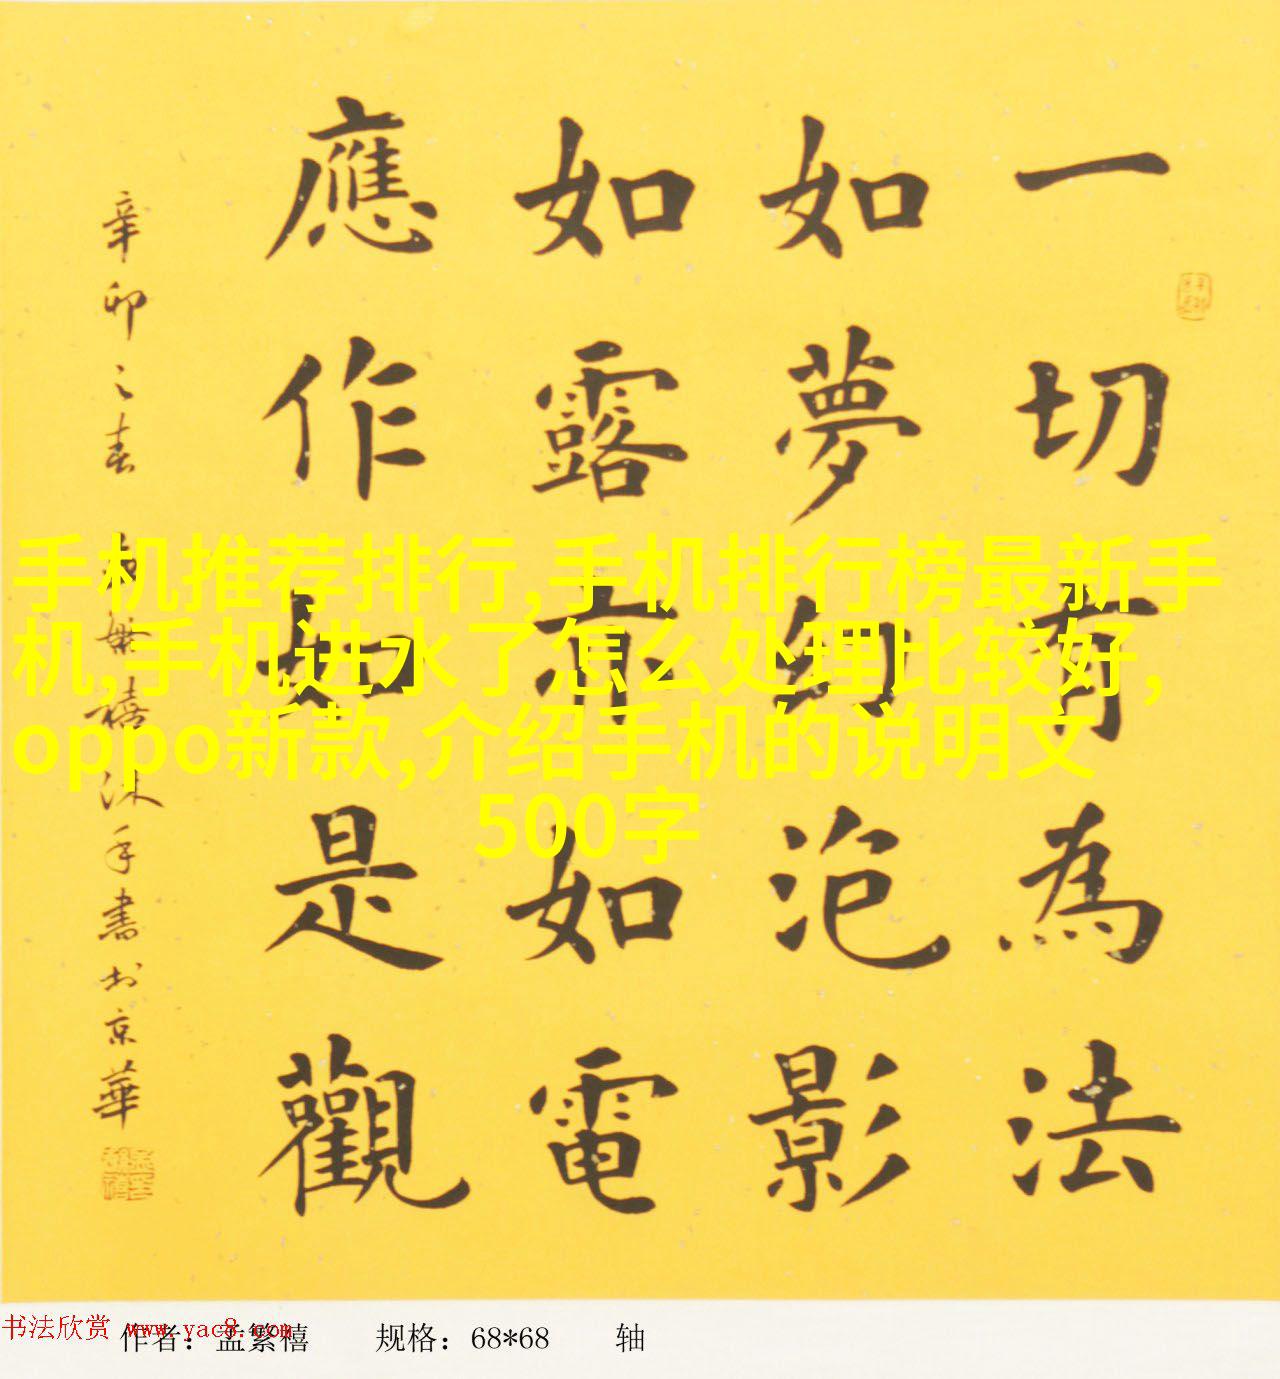 一切有為法
如夢幻泡影
如露亦如電
應作如是觀
辛卯之春 孟繁禧沐手書於京華
手机推荐排行,手机排行榜最新手
机,手机进水了怎么处理比较好,
oppo新款,介绍手机的说明文
500字
书法欣赏 www.yac8.com
作者：孟繁禧 规格：68*68 轴